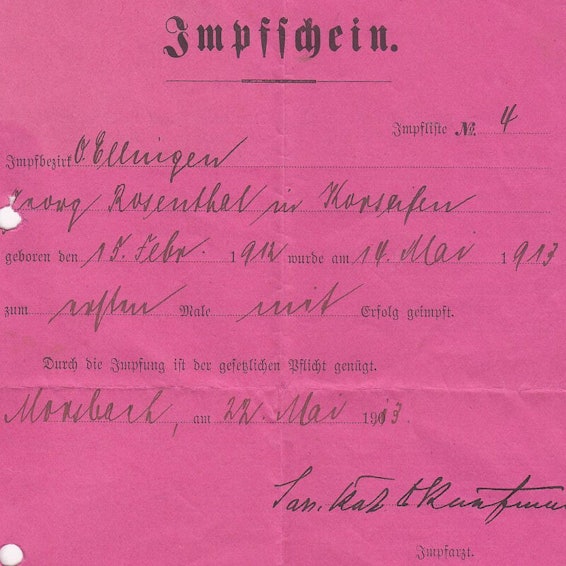 Impfschein.
Impfliste № 4
Impfbezirk O. Ellingen
Georg Rosenthal in Korseifen
geboren den 15. Febr. 1912 wurde am 14. Mai 1913
zum ersten Male mit Erfolg geimpft.
Durch die Impfung ist der gesetzlichen Pflicht genügt.
Morsbach, am 22. Mai 1913.
San. Rat
Impfarzt.